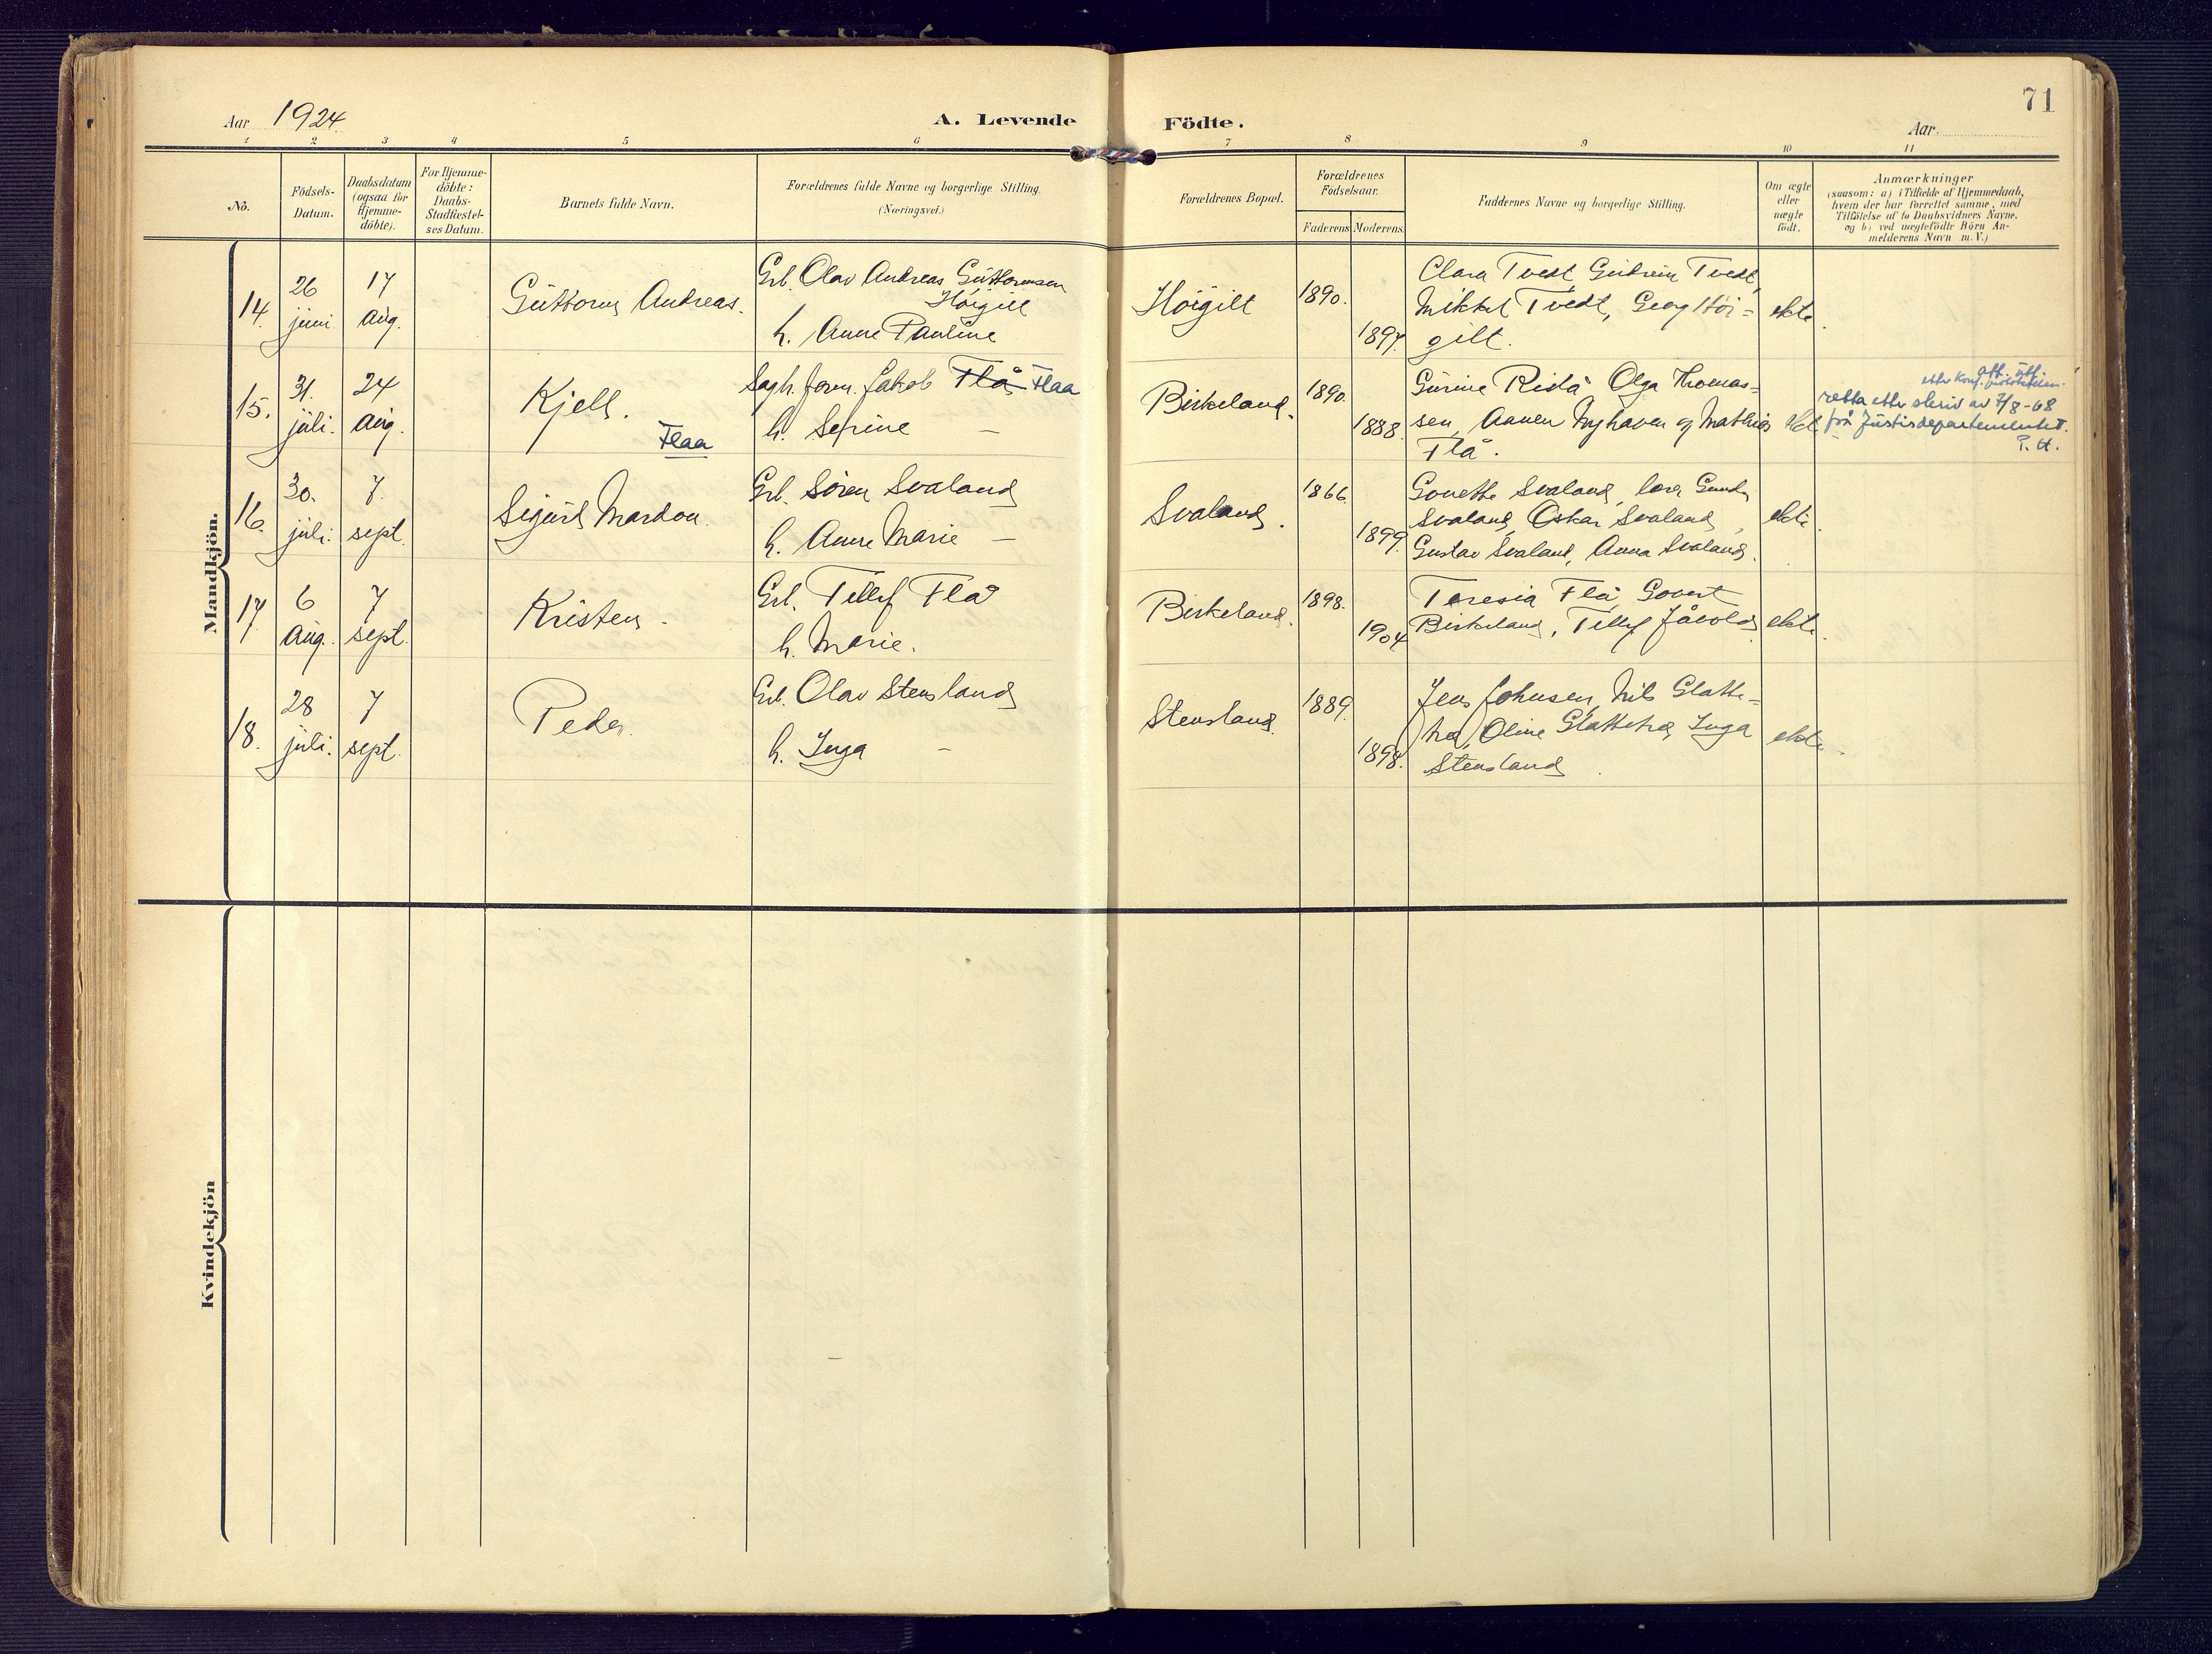 71
Aar 1924
A. Levende Födte.
Aar
1 2 3 4 5 6 7 8 9 10 11
No.
Födsels-Datum.
Daabsdatum (ogsaa for Hjemme-döbte).
For Hjemme-döbte: Daabs-Stadfæstel-ses Datum.
Barnets fulde Navn.
Forældrenes fulde Navne og borgerlige Stilling.
(Næringsvei.)
Forældrenes Bopæl.
Forældrenes Födselsaar.
Faderens Moderens
Faddernes Navne og borgerlige Stilling.
Om ægte eller uægte födt.
Anmærkninger
(saasom: a) i Tilfælde af Hjemmedaab,
hvem der har forrettet samme, med
Tilföielse af to Daabsvidners Navne,
og b) ved uægtefödte Börn An-
melderens Navn m. V.)
Mandkjön.
14. 26 juni. 17 aug.
Guttorm Andreas.
Grb. Olav Andreas Guttormsen
Höigilt
h. Anne Pauline
Höigilt
1890.
1897.
Clara Tvedt, Gudrun Tvedt,
Mikkel Tvedt, Georg Höi=
gilt.
ekte.
15. 31. juli. 24 aug.
Kjell.
Flaa
Sagh. form. Jakob Flå Flaa
h. Serine —
Birkeland.
1890.
1888.
Gurine Risla Olga Thomas=
sen, Annen Nyhaven og Mathias
Flå.
ekte
retta etter skriv av 7/8-68
frå Justisdepartementet.
P. H.
16. 30. juli. 7. sept.
Sigurd Mardon.
Grb. Sören Svaland
h. Anne Marie —
Svaland.
1866.
1899.
Gonette Svaland, Gunda
Svaland, Oskar Svaland,
Gustav Svaland, Anna Svaland.
ekte.
17. 6 aug. 7 sept.
Kristen.
Grb. Tellef Flå
h. Marie.
Birkeland.
1898.
1904
Teresia Flå, Govert
Birkeland, Tellef Jåvold
ekte.
18. 28 juli. 7 sept.
Peder.
Grb. Olav Stensland
h. Inga —
Stensland.
1889.
1898.
Jens Johnsen, Nils Glatte=
tre, Oline Glattetre, Inga
Stensland.
ekte.
Kvindekjön